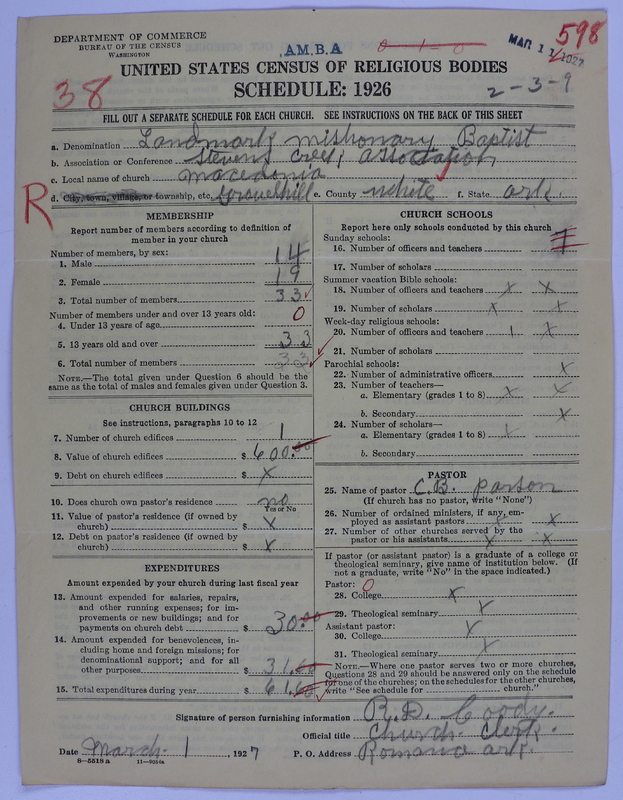 DEPARTMENT OF COMMERCE
BUREAU OF THE CENSUS
WASHINGTON
A.M.B.A
0-1-0
MAR 11 1927
598
38
2-3-9
UNITED STATES CENSUS OF RELIGIOUS BODIES
SCHEDULE: 1926
FILL OUT A SEPARATE SCHEDULE FOR EACH CHURCH. SEE INSTRUCTIONS ON THE BACK OF THIS SHEET
a. Denomination Landmark missionary Baptist
b. Association or Conference Stevens Creek association
c. Local name of church macedonia
R
d. City, town, village, or township, etc. Gravelhill e. County white f. State ark.
MEMBERSHIP
Report number of members according to definition of
member in your church
Number of members, by sex:
1. Male 14
2. Female 19
3. Total number of members 33
Number of members under and over 13 years old:
4. Under 13 years of age 0
5. 13 years old and over 33
6. Total number of members 33
NOTE.—The total given under Question 6 should be the
same as the total of males and females given under Question 3.
CHURCH BUILDINGS
See instructions, paragraphs 10 to 12
7. Number of church edifices 1
8. Value of church edifices $ 600.00
9. Debt on church edifices $ X
10. Does church own pastor's residence no
Yes or No
11. Value of pastor's residence (if owned by
church) $ X
12. Debt on pastor's residence (if owned by
church) $ X
EXPENDITURES
Amount expended by your church during last fiscal year
13. Amount expended for salaries, repairs,
and other running expenses; for im-
provements or new buildings; and for
payments on church debt $ 30.00
14. Amount expended for benevolences, in-
cluding home and foreign missions; for
denominational support; and for all
other purposes $ 31.60
15. Total expenditures during year $ 61.60
CHURCH SCHOOLS
Report here only schools conducted by this church
Sunday schools:
16. Number of officers and teachers
17. Number of scholars
Summer vacation Bible schools:
18. Number of officers and teachers X X
19. Number of scholars X X
Week-day religious schools:
20. Number of officers and teachers 1 X
21. Number of scholars
Parochial schools:
22. Number of administrative officers X
23. Number of teachers—
a. Elementary (grades 1 to 8) X X
b. Secondary X
24. Number of scholars—
a. Elementary (grades 1 to 8) X
b. Secondary
PASTOR
25. Name of pastor C.B. parson
(If church has no pastor, write "None")
26. Number of ordained ministers, if any, em-
ployed as assistant pastors X X
27. Number of other churches served by the
pastor or his assistants X X
If pastor (or assistant pastor) is a graduate of a college or
theological seminary, give name of institution below. (If
not a graduate, write "No" in the space indicated.)
Pastor: 0
28. College X
29. Theological seminary X
Assistant pastor:
30. College X
31. Theological seminary X
NOTE.—Where one pastor serves two or more churches,
Questions 28 and 29 should be answered only on the schedule
for one of the churches; on the schedules for the other churches,
write "See schedule for church."
Signature of person furnishing information R.D. Coody.
Official title Church Clerk.
Date March 1, 1927 P. O. Address Romance ark.
8-5518 a 11-9054a